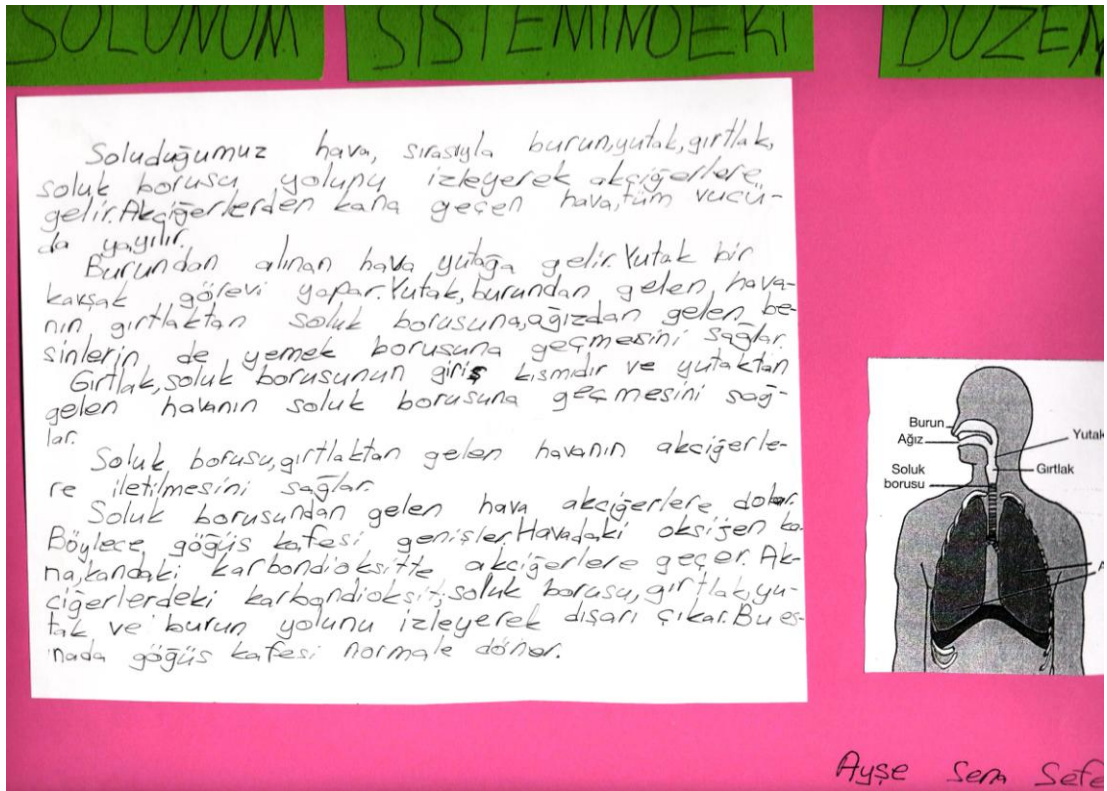 SOLUNUM SİSTEMİNDEKİ DÜZEN
Soluduğumuz hava, sırasıyla burun,yutak,gırtlak,
soluk borusu yolunu izleyerek akciğerlere
gelir.Akciğerlerden kana geçen hava,tüm vücü-
da yayılır.
Burundan alınan hava yutağa gelir.Yutak bir
kavşak görevi yapar.Yutak,burundan gelen hava-
nın gırtlaktan soluk borusuna,ağızdan gelen be-
sinlerin de yemek borusuna geçmesini sağlar.
Gırtlak,soluk borusunun giriş kısmıdır ve yutaktan
gelen havanın soluk borusuna geçmesini sağ-
lar.
Soluk borusu,gırtlaktan gelen havanın akciğerle-
re iletilmesini sağlar.
Soluk borusundan gelen hava akciğerlere dolar.
Böylece göğüs kafesi genişler.Havadaki oksijen ka-
na,kandaki karbondioksitte akciğerlere geçer.Ak-
ciğerlerdeki karbondioksit,soluk borusu,gırtlak,yu-
tak ve burun yolunu izleyerek dışarı çıkar.Bu es-
nada göğüs kafesi normale döner.
Burun
Ağız
Yutak
Soluk
borusu
Gırtlak
A
Ayşe Sena Sefe